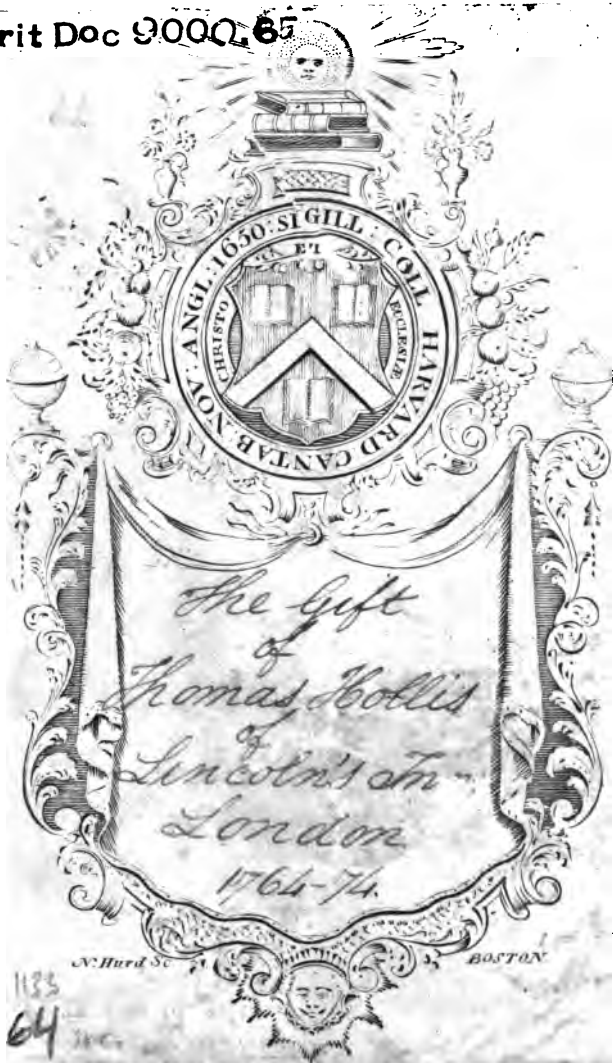 rit Doc 9000.65
SIGILL : COLL HARVARD CANTAB : NOV : ANGL : 1650 :
CHRISTO ET ECCLESIÆ
The Gift
of
Thomas Hollis
of
Lincoln's In
London
1764-74.
N. Hurd Sc BOSTON
1133
64